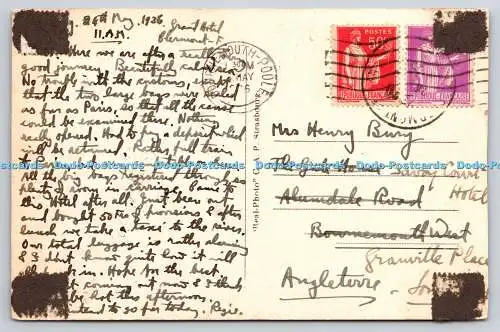 26th May, 1936. Grand Hotel
11 A.M. Clermont-F
Here we are after a really
good journey. Beautifully calm sea.
No trouble with the customs, except
that the two large bags were sealed
as far as Paris, so that all the case
could be examined there. Nothing
really opened. Had to pay a deposit
will be returned. Rather full train
all the big bags registered through so
plenty of room in carriage. Came to
this Hotel after all. Just been out
and bought 50 frs of provisions & after
lunch we take a taxi to the river.
Our total luggage is rather alarming
& I don't know quite how it will
all in. Hope for the best
coming out now & I think
be hot this afternoon.
tend to go far today. Regie.
BOURNEMOUTH-POOLE
MAY
POSTES
50c
Real-Photo
Strasbourg
Mrs Henry Bury
Savoy Court
Hotel
Alumdale Road
Bournemouth West
Granville Place
Angleterre
Dodo-Postcards Dodo-Postcards Dodo-Postcards Dodo-Postcards Dodo-Postcards